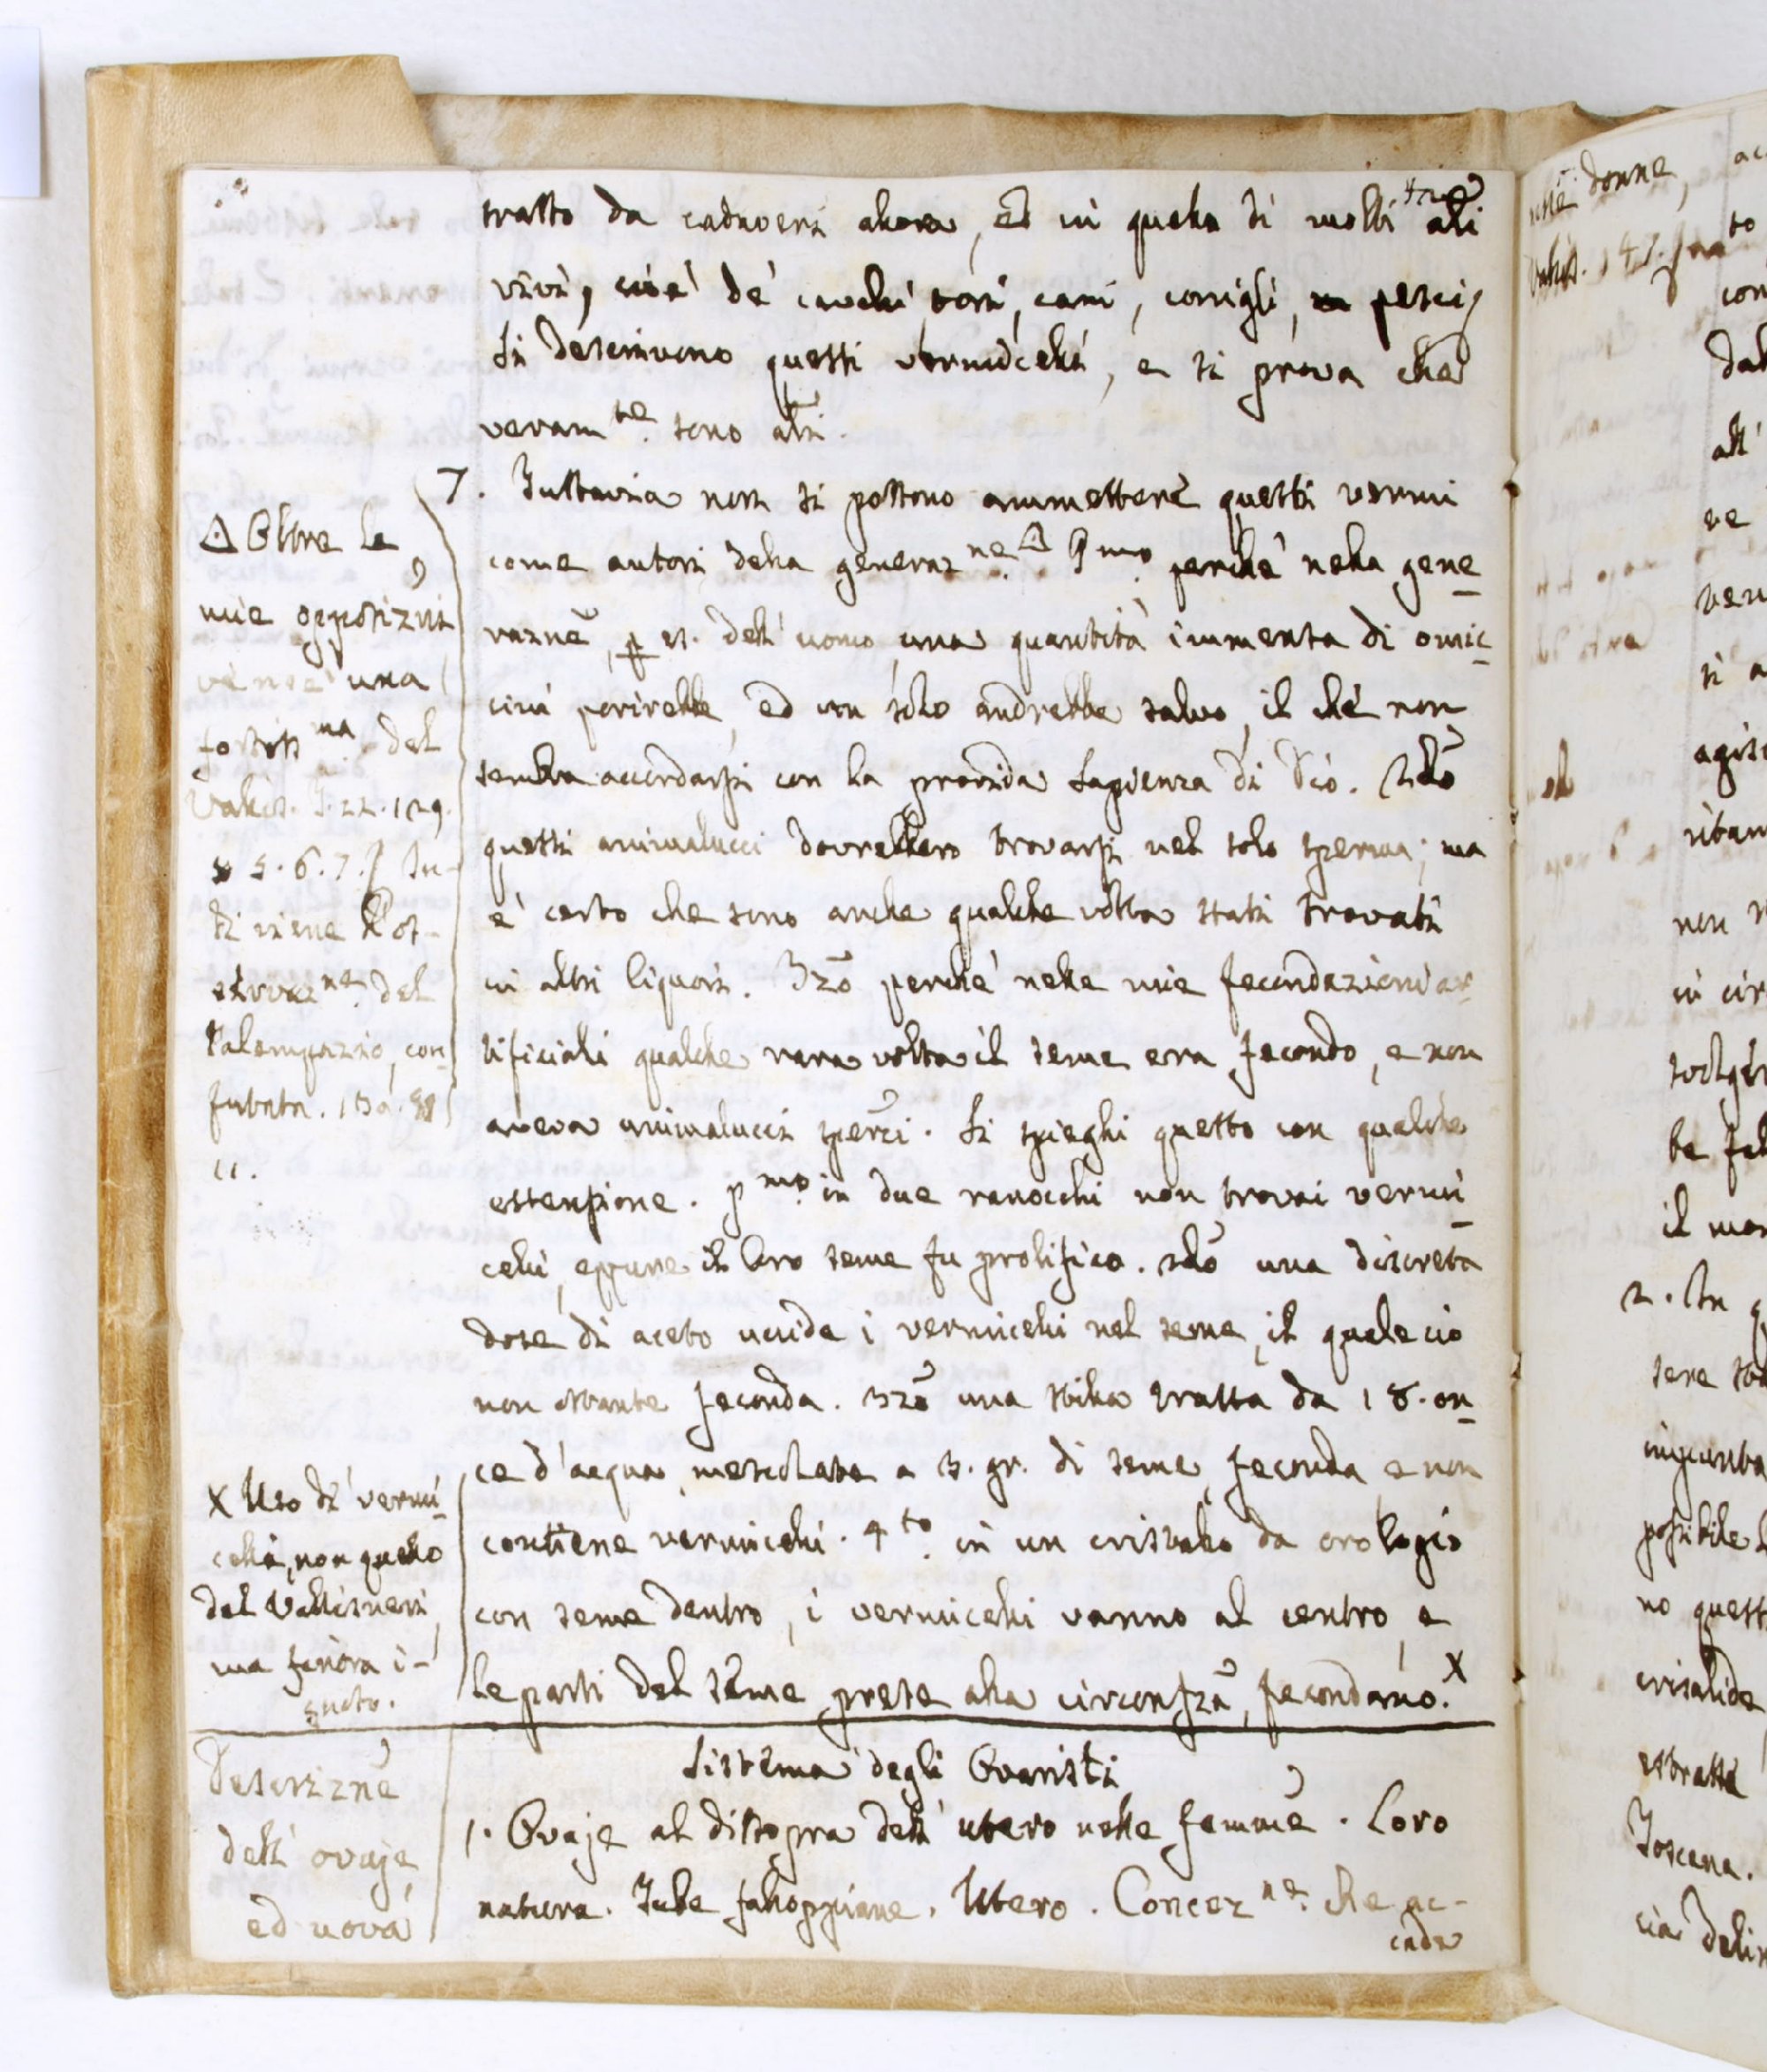 tratto da cadaveri allora, ed in quello di molti ali
vivi, cioè de' cavalli tori, cani, conigli, pesci,
Si descrivono questi vermicelli, e si prova che
veram.te sono ali.
7. Tuttavia non si possono ammettere questi vermi
come autori della generaz.ne ∆ Pmo. perchè nella gene
razne, p. es. dell' uomo una quantità immensa di omic
cini perirebbe, ed un solo andrebbe salvo, il chè non
sembra accordarsi con la provvida Sapienza di Dio. 2do
questi animalucci dovrebbero trovarsi nel solo sperma; ma
è certo che sono anche qualche volta stati trovati
in altri liquori. 3zo perchè nelle mie fecondazioni ar
tificiali qualche rara volta il seme era fecondo, e non
aveva animalucci sperci. Si spieghi questo con qualche
estensione. pmo. in due ranocchi non trovai vermi
celli, eppure il loro seme fu prolifico. 2do una discreta
dose di aceto uccide i vermicelli nel seme, il quale ciò
non ostante feconda. 3zo una stilla tratta da 18. on
ce d'acqua, mescolate a 3. gr. di seme, feconda e non
contiene vermicelli. 4to. in un cristallo da orologio
con seme dentro, i vermicelli vanno al centro, e
le parti del seme prese alla circonfza, fecondano. X
∆ Oltre le
mie opposizni
ven'è una
fortiss.ma del
Vallis. T. 22. 129.
5. 6. 7.
ti viene l'os-
servaz.ne del
Palempazio, con
futata. 130.
11.
X Uso di vermi
celli, non quello
del Vallisneri,
ma finora i-
gnoto.
Sistema degli Ovaristi
1. Ovaje al dissopra dell' utero nelle femme. Loro
natura. Tube falloppiane. Utero. Concez.ne che ac-
cada
Descrizne
dell' ovaje
ed uova